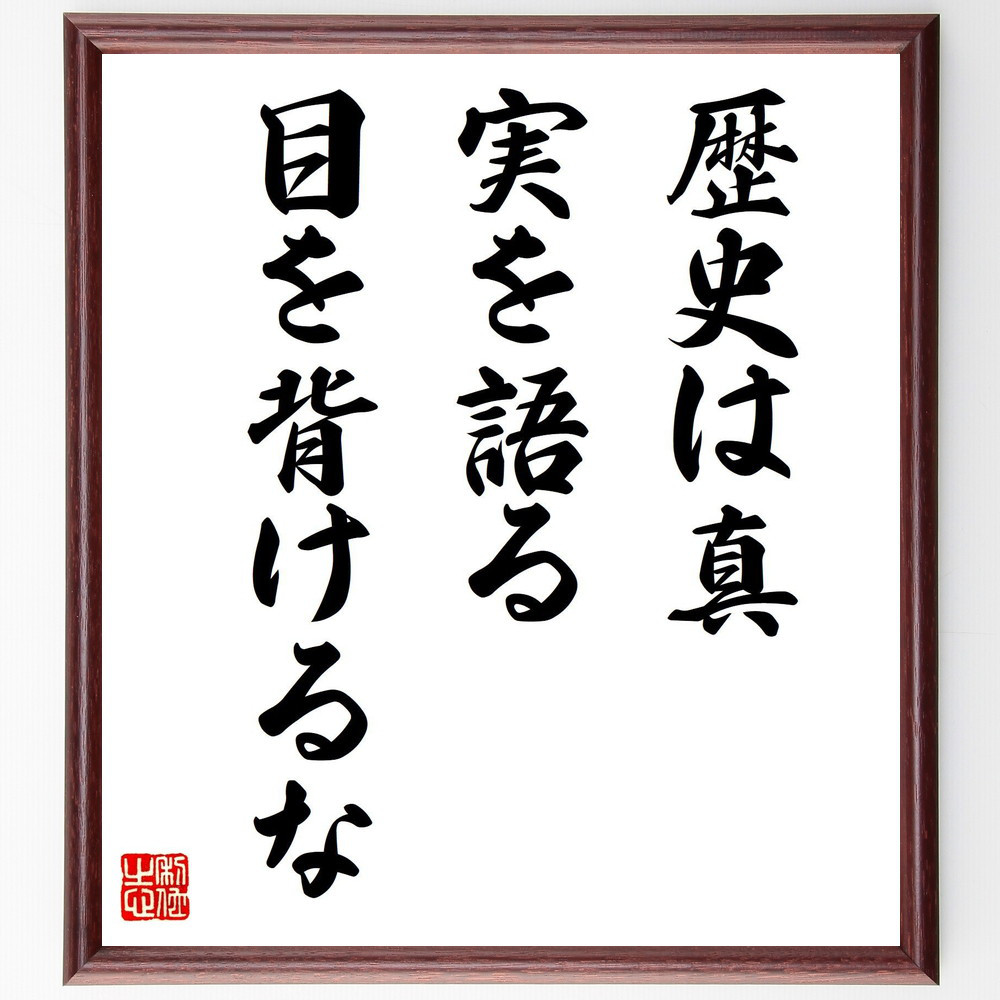 歴史は真
実を語る
目を背けるな